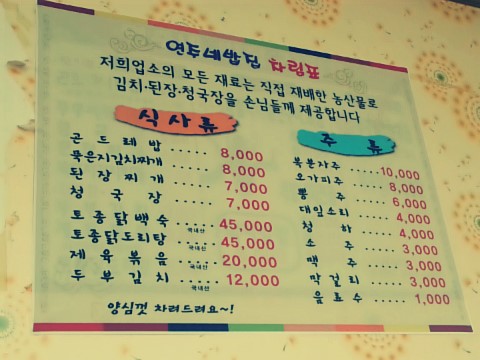 차림표
저희업소의 모든 재료는 직접 재배한 농산물로
김치·된장·청국장을 손님들께 제공합니다
식사류
곤드레밥 ..... 8,000
묵은지김치찌개 ..... 8,000
된장찌개 ..... 7,000
청국장 ..... 7,000
토종닭백숙 국내산 45,000
토종닭도리탕 국내산 45,000
제육볶음 국내산 20,000
두부김치 국내산 12,000
양심껏 차려드려요~!
주류
복분자주 ..... 10,000
오가피주 ..... 8,000
뽕주 ..... 6,000
대잎소리 ..... 4,000
청하 ..... 4,000
소주 ..... 3,000
맥주 ..... 3,000
막걸리 ..... 3,000
음료수 ..... 1,000